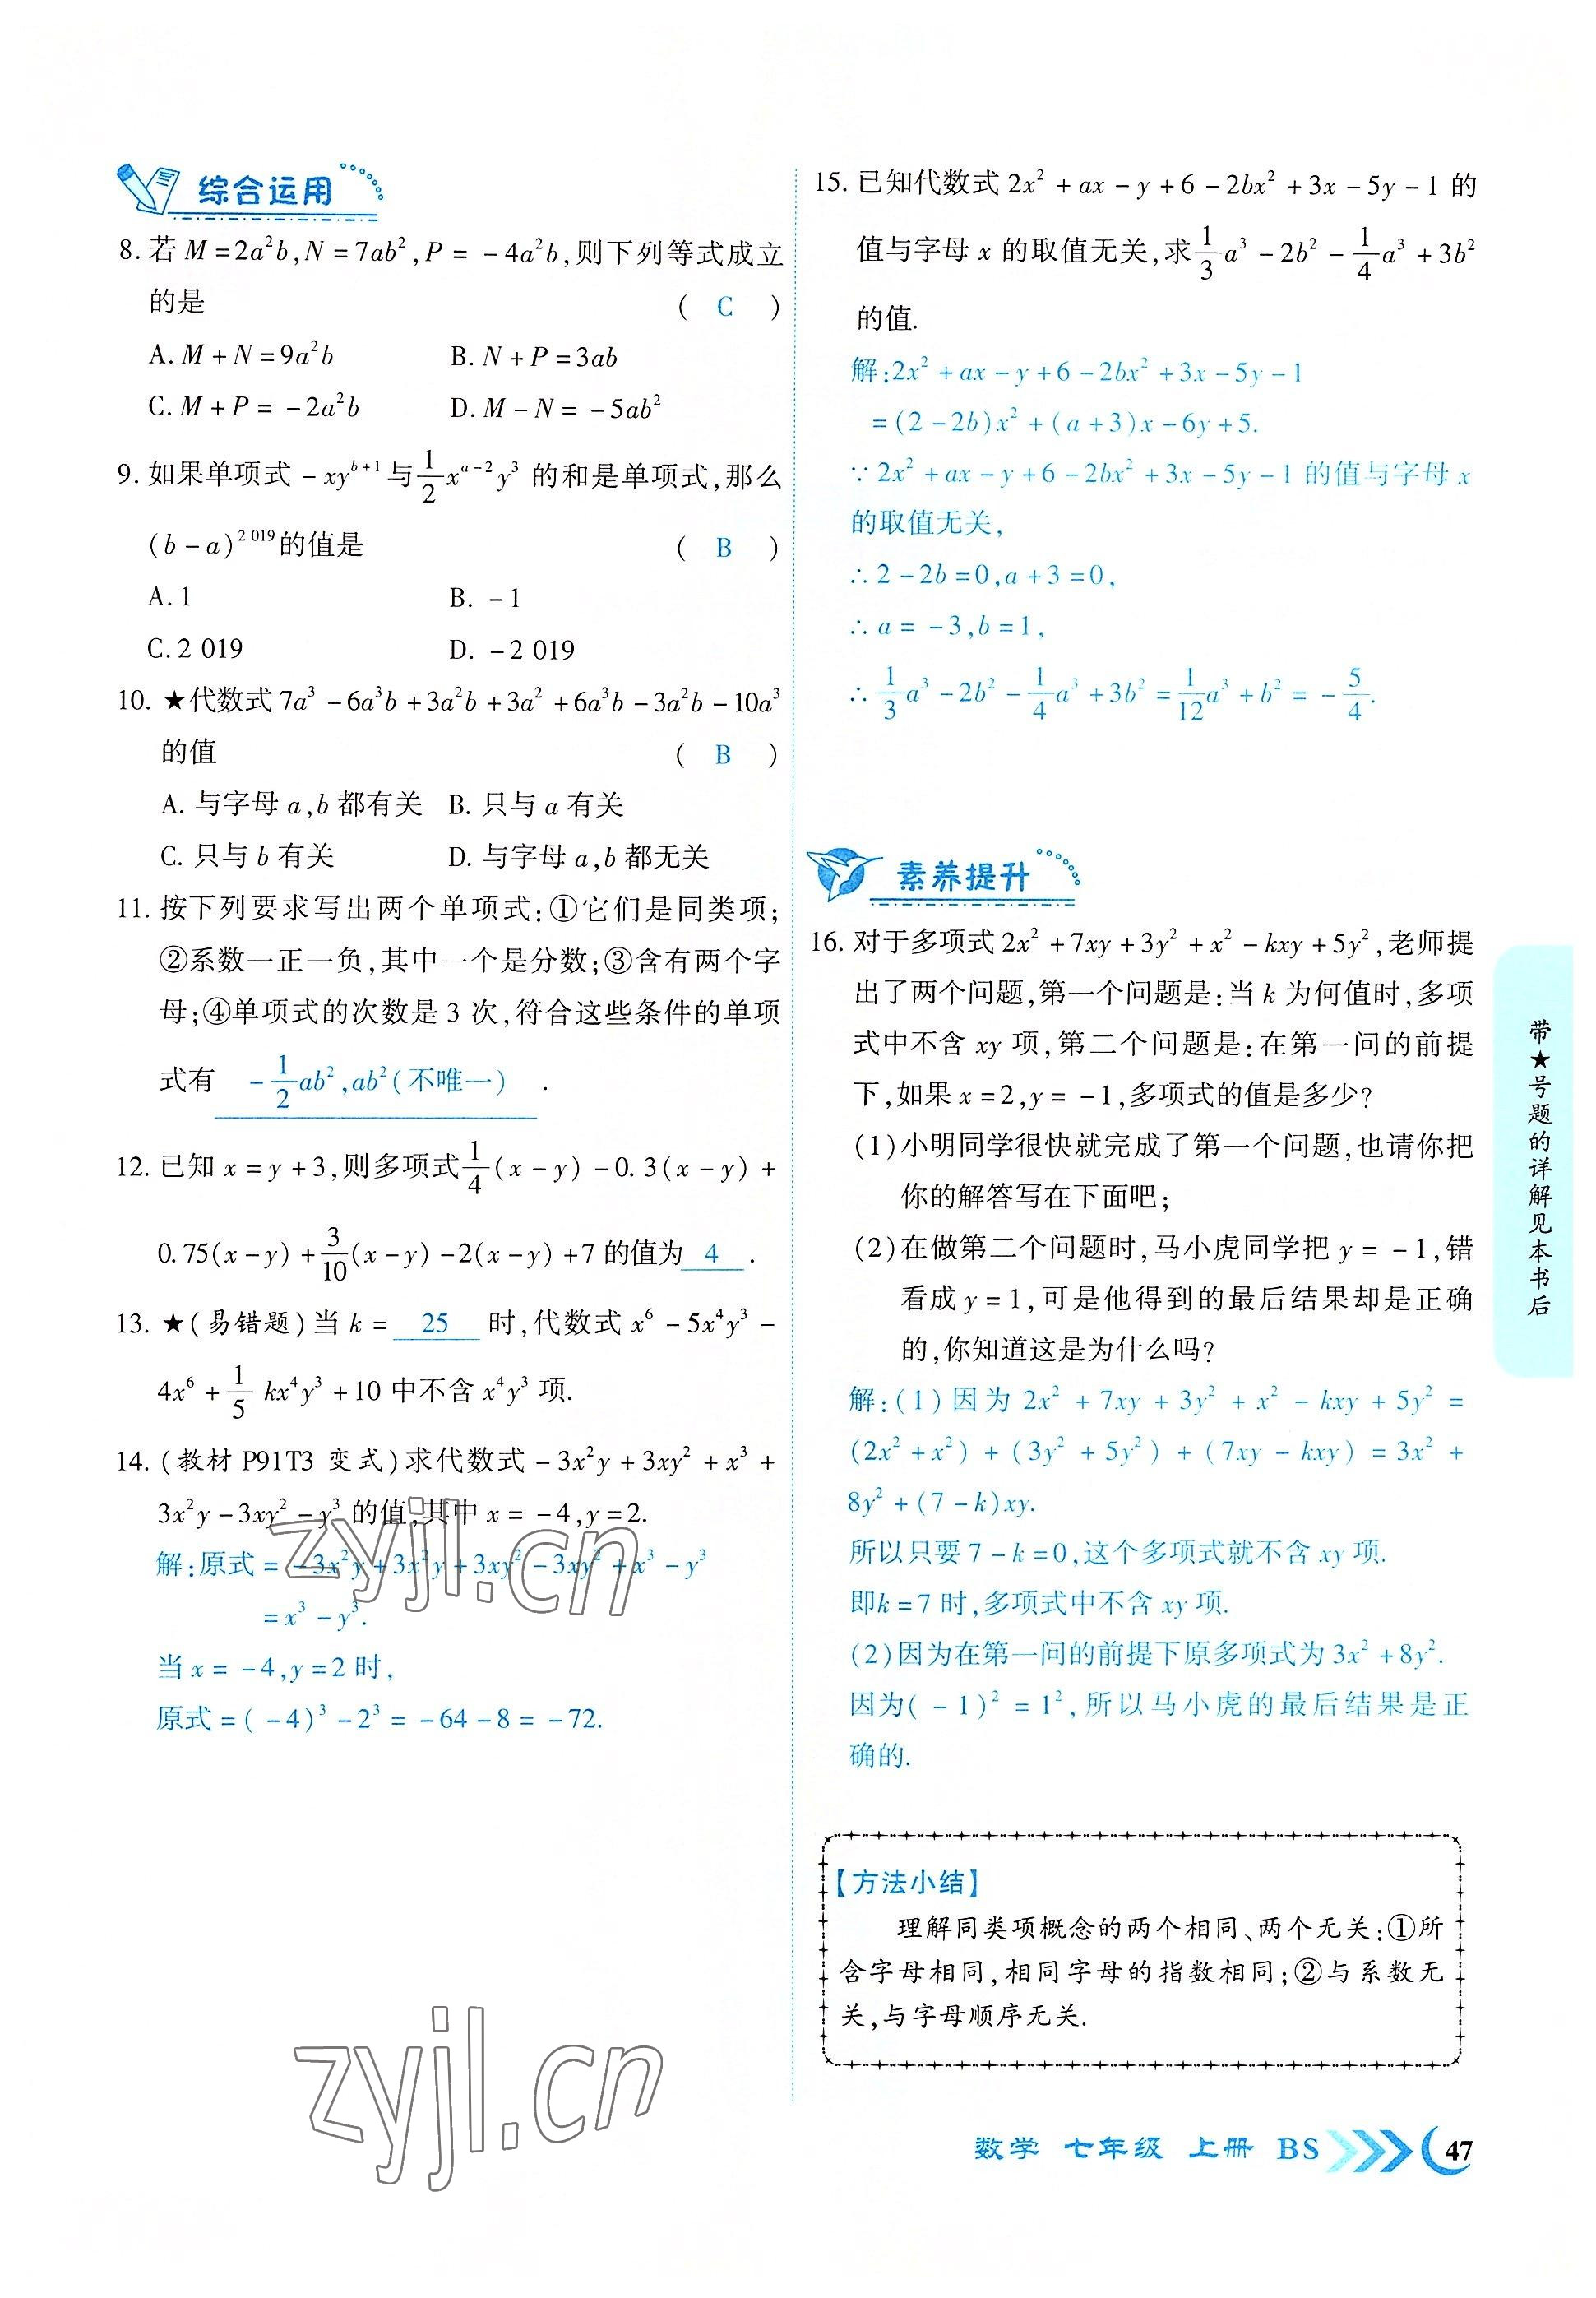 综合运用
8. 若 M=2a²b,N=7ab²,P=-4a²b,则下列等式成立
的是 ( C )
A. M+N=9a²b B. N+P=3ab
C. M+P=-2a²b D. M-N=-5ab²
9. 如果单项式 -xy^{b+1} 与 \frac{1}{2}x^{a-2}y³ 的和是单项式,那么
(b-a)^{2 019} 的值是 ( B )
A. 1 B. -1
C. 2 019 D. -2 019
10. ★代数式 7a³-6a³b+3a²b+3a²+6a³b-3a²b-10a³
的值 ( B )
A. 与字母 a,b 都有关 B. 只与 a 有关
C. 只与 b 有关 D. 与字母 a,b 都无关
11. 按下列要求写出两个单项式:①它们是同类项;
②系数一正一负,其中一个是分数;③含有两个字
母;④单项式的次数是 3 次,符合这些条件的单项
式有 -\frac{1}{2}ab²,ab²(不唯一) .
12. 已知 x=y+3,则多项式 \frac{1}{4}(x-y)-0.3(x-y)+
0.75(x-y)+\frac{3}{10}(x-y)-2(x-y)+7 的值为 4 .
13. ★(易错题)当 k= 25 时,代数式 x⁶-5x⁴y³-
4x⁶+\frac{1}{5}kx⁴y³+10 中不含 x⁴y³ 项.
14. (教材 P91T3 变式)求代数式 -3x²y+3xy²+x³+
3x²y-3xy²-y³ 的值,其中 x=-4,y=2.
解:原式=-3x²y+3x²y+3xy²-3xy²+x³-y³
=x³-y³.
当 x=-4,y=2 时,
原式=(-4)³-2³=-64-8=-72.
15. 已知代数式 2x²+ax-y+6-2bx²+3x-5y-1 的
值与字母 x 的取值无关,求 \frac{1}{3}a³-2b²-\frac{1}{4}a³+3b²
的值.
解:2x²+ax-y+6-2bx²+3x-5y-1
=(2-2b)x²+(a+3)x-6y+5.
∵2x²+ax-y+6-2bx²+3x-5y-1 的值与字母 x
的取值无关,
∴2-2b=0,a+3=0,
∴a=-3,b=1,
∴\frac{1}{3}a³-2b²-\frac{1}{4}a³+3b²=\frac{1}{12}a³+b²=-\frac{5}{4}.
素养提升
16. 对于多项式 2x²+7xy+3y²+x²-kxy+5y²,老师提
出了两个问题,第一个问题是:当 k 为何值时,多项
式中不含 xy 项,第二个问题是:在第一问的前提
下,如果 x=2,y=-1,多项式的值是多少?
(1)小明同学很快就完成了第一个问题,也请你把
你的解答写在下面吧;
(2)在做第二个问题时,马小虎同学把 y=-1,错
看成 y=1,可是他得到的最后结果却是正确
的,你知道这是为什么吗?
解:(1)因为 2x²+7xy+3y²+x²-kxy+5y²=
(2x²+x²)+(3y²+5y²)+(7xy-kxy)=3x²+
8y²+(7-k)xy.
所以只要 7-k=0,这个多项式就不含 xy 项.
即k=7 时,多项式中不含 xy 项.
(2)因为在第一问的前提下原多项式为 3x²+8y².
因为(-1)²=1²,所以马小虎的最后结果是正
确的.
【方法小结】
理解同类项概念的两个相同、两个无关:①所
含字母相同,相同字母的指数相同;②与系数无
关,与字母顺序无关.
带★号题的详解见本书后
数学 七年级 上册 BS 47
zyjl.cn
zyjl.cn